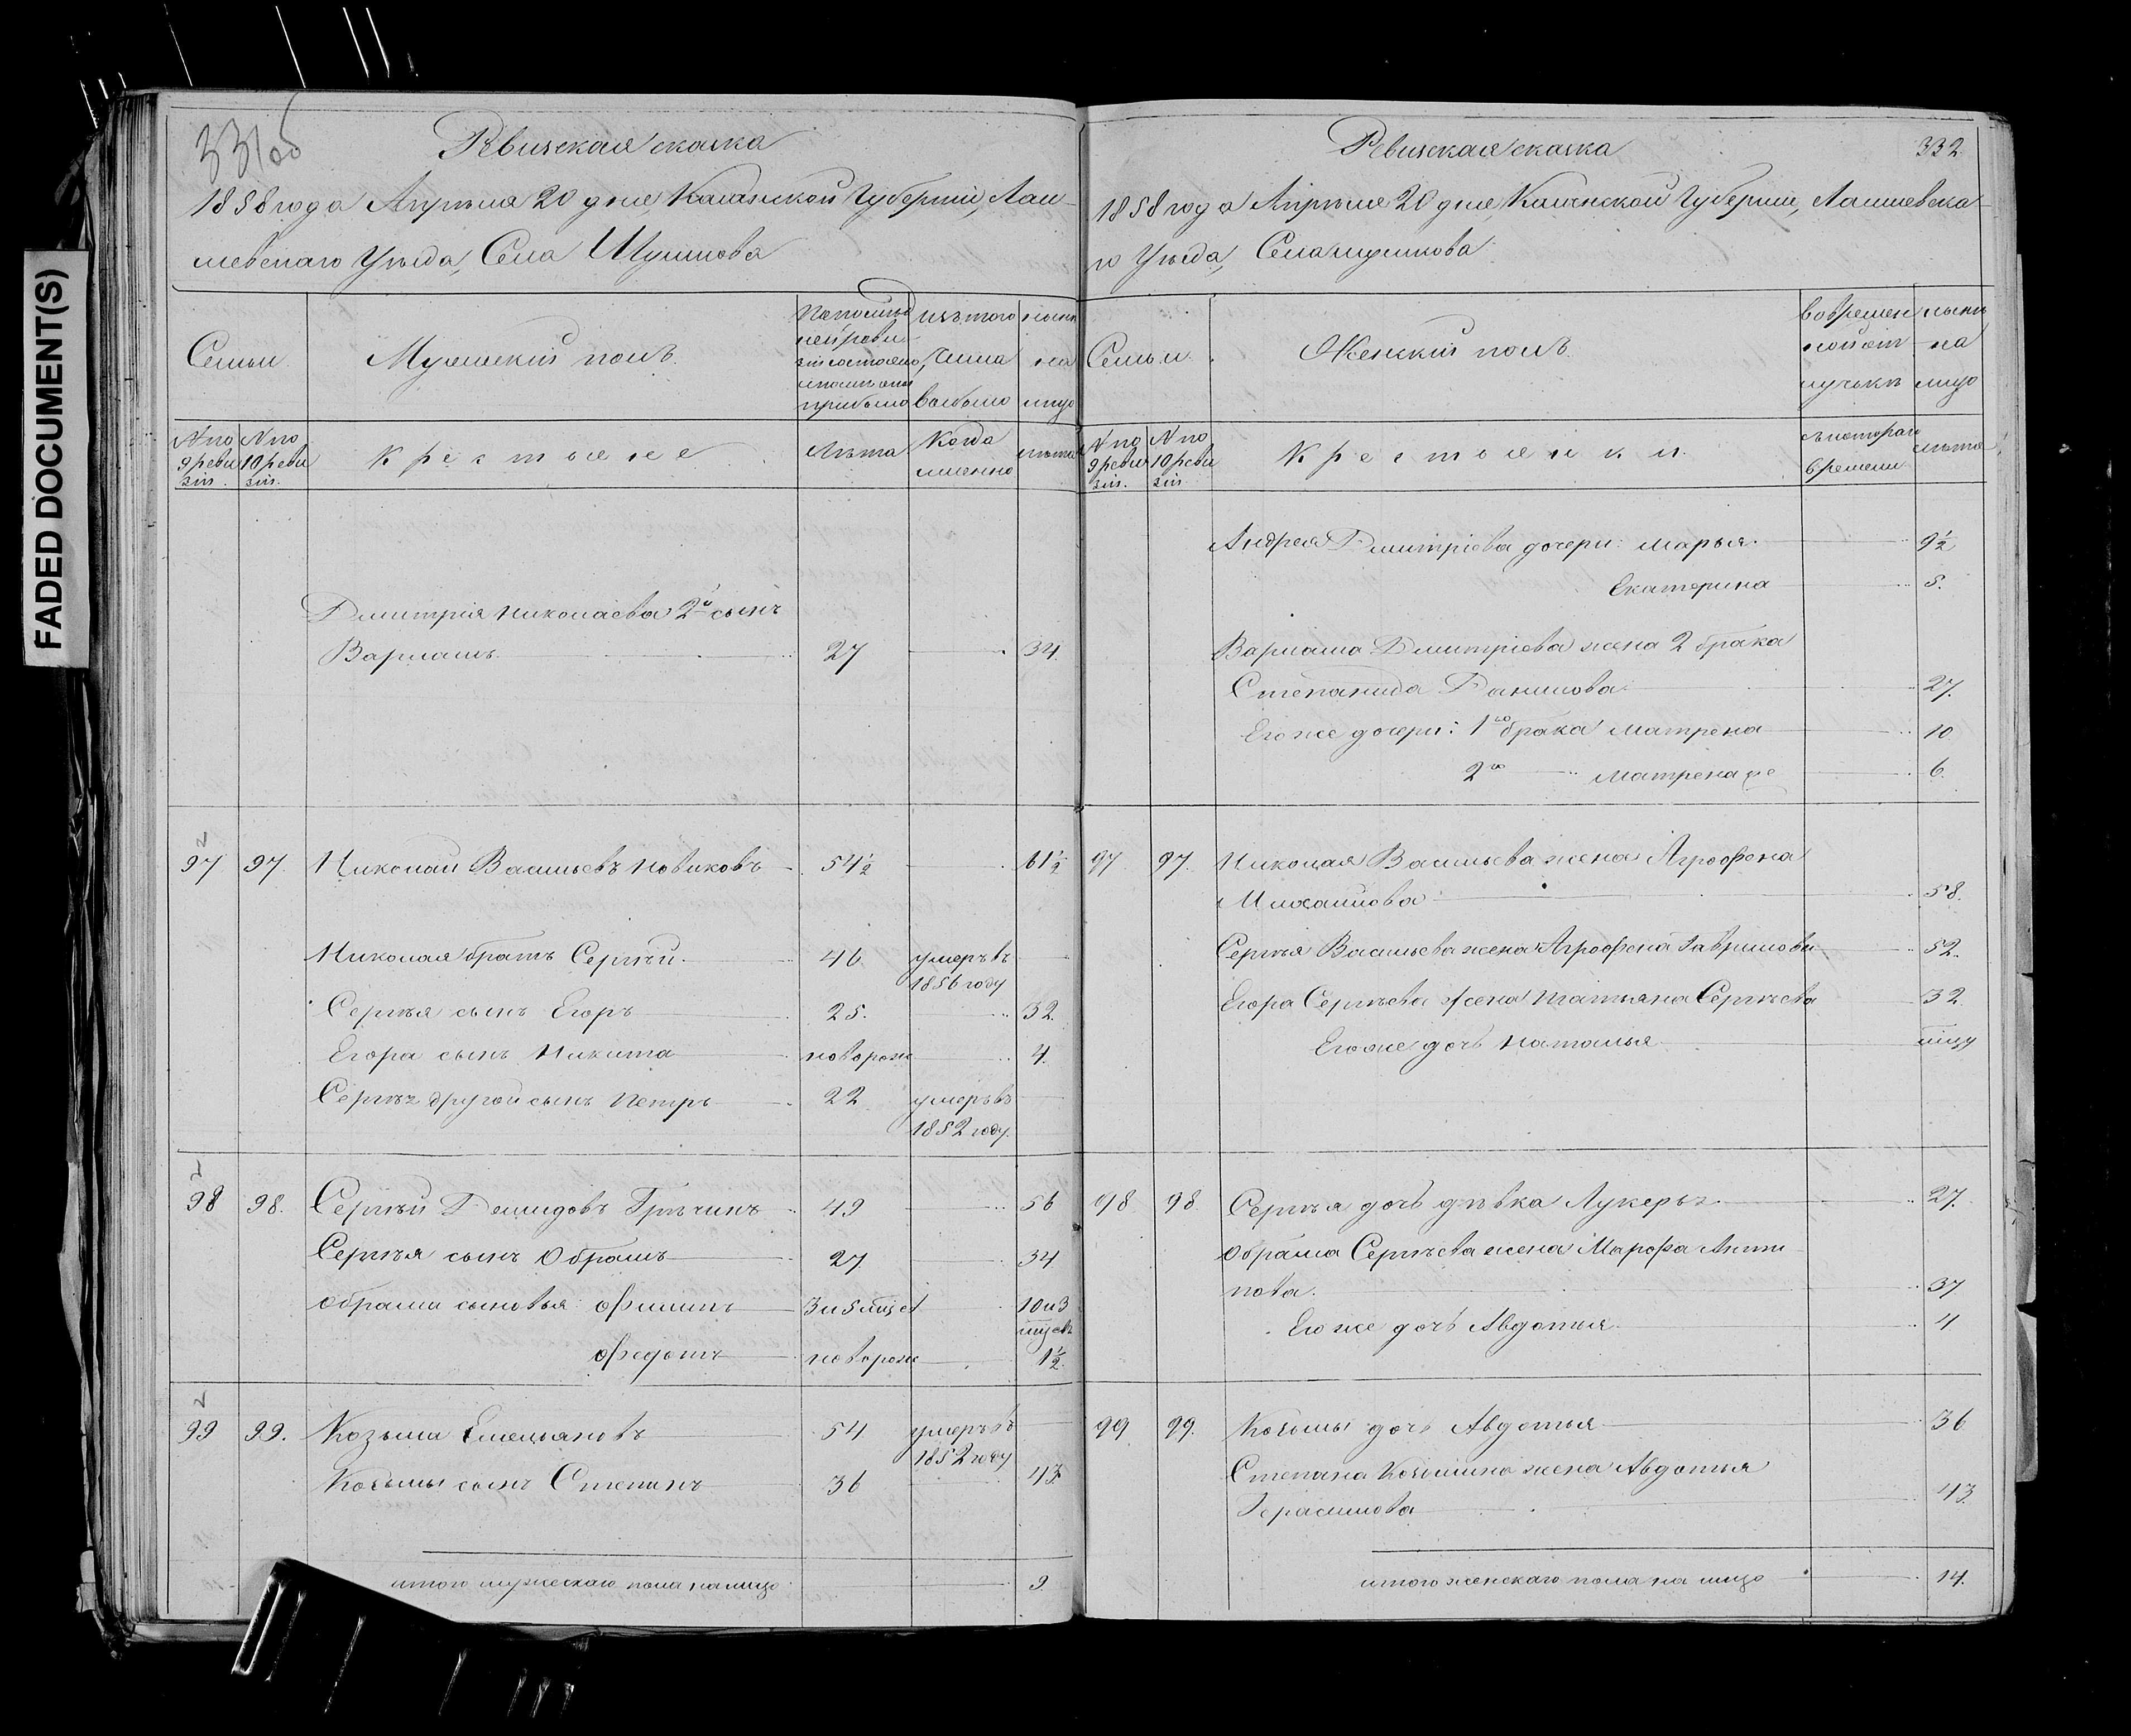 FADED DOCUMENT(S)
331об
Ревизская сказка
1858 года Апреля 20 дня, Казанской Губернии, Лаи-
шевскаго Уезда, Села Шумкова
Семьи
Мужескій полъ.
По послед
ней реви
зіи состояло,
и после оной
прибыло
изъ того
числа
выбыло
ныне
на
лицо
N по
9 реви
зіи.
N по
10 реви
зіи.
Крестьяне
Лета
Когда
именно
лета
Дмитрія Николаева 2й сынъ
Варламъ 27 34.
97 97. Николай Васильевъ Новиковъ 54½ 61½
Николая братъ Сергѣй 46 умеръ въ
1856 году
Сергѣя сынъ Егоръ 25. 32.
Егора сынъ Никита новорож 4.
Сергѣя другой сынъ Петръ 22 умеръ въ
1852 году.
98 98. Сергѣй Демидовъ Грѣчинъ 49 56
Сергѣя сынъ Обрамъ 27 34
Обрама сыновья: Филипъ 3 и 5 мѣсе 10 и 3
мѣсец
Федотъ новорож 1½.
99 99. Козьма Емельяновъ 54 умеръ въ
1852 году
Козьмы сынъ Степанъ 36 43.
итого мужескаго пола на лицо 9
Ревизская сказка 332.
1858 года Апреля 20 дня, Казанской Губерніи, Лаишевска-
го Уезда, Села Шумкова
Семьи.
Женскій полъ.
во времен
ной от
лучке
ныне
на
лицо
N по
9 реви
зіи.
N по
10 реви
зіи
Крестьянки.
съ котораго
времени
лета
Андрея Дмитріева дочери: Марья 9½
Екатерина 5.
Варлама Дмитріева жена 2 брака
Степанида Данилова 27.
Его же дочери: 1го брака Матрена 10
2го Матрена же 6.
97 97. Николая Васильева жена Агрофена
Михайлова 58.
Сергѣя Васильева жена Агрофена Гаврилова 52.
Егора Сергѣева жена Татьяна Сергѣева 32.
Его же дочь Наталья мѣцу
98 98. Сергѣя дочь дѣвка Лукерья 27.
Обрама Сергѣева жена Марфа Анти-
пова. 37
Его же дочь Авдотья 4
99 99. Козьмы дочь Авдотья 36
Степана Козьмина жена Авдотья
Герасимова 43
итого женскаго пола на лицо 14.